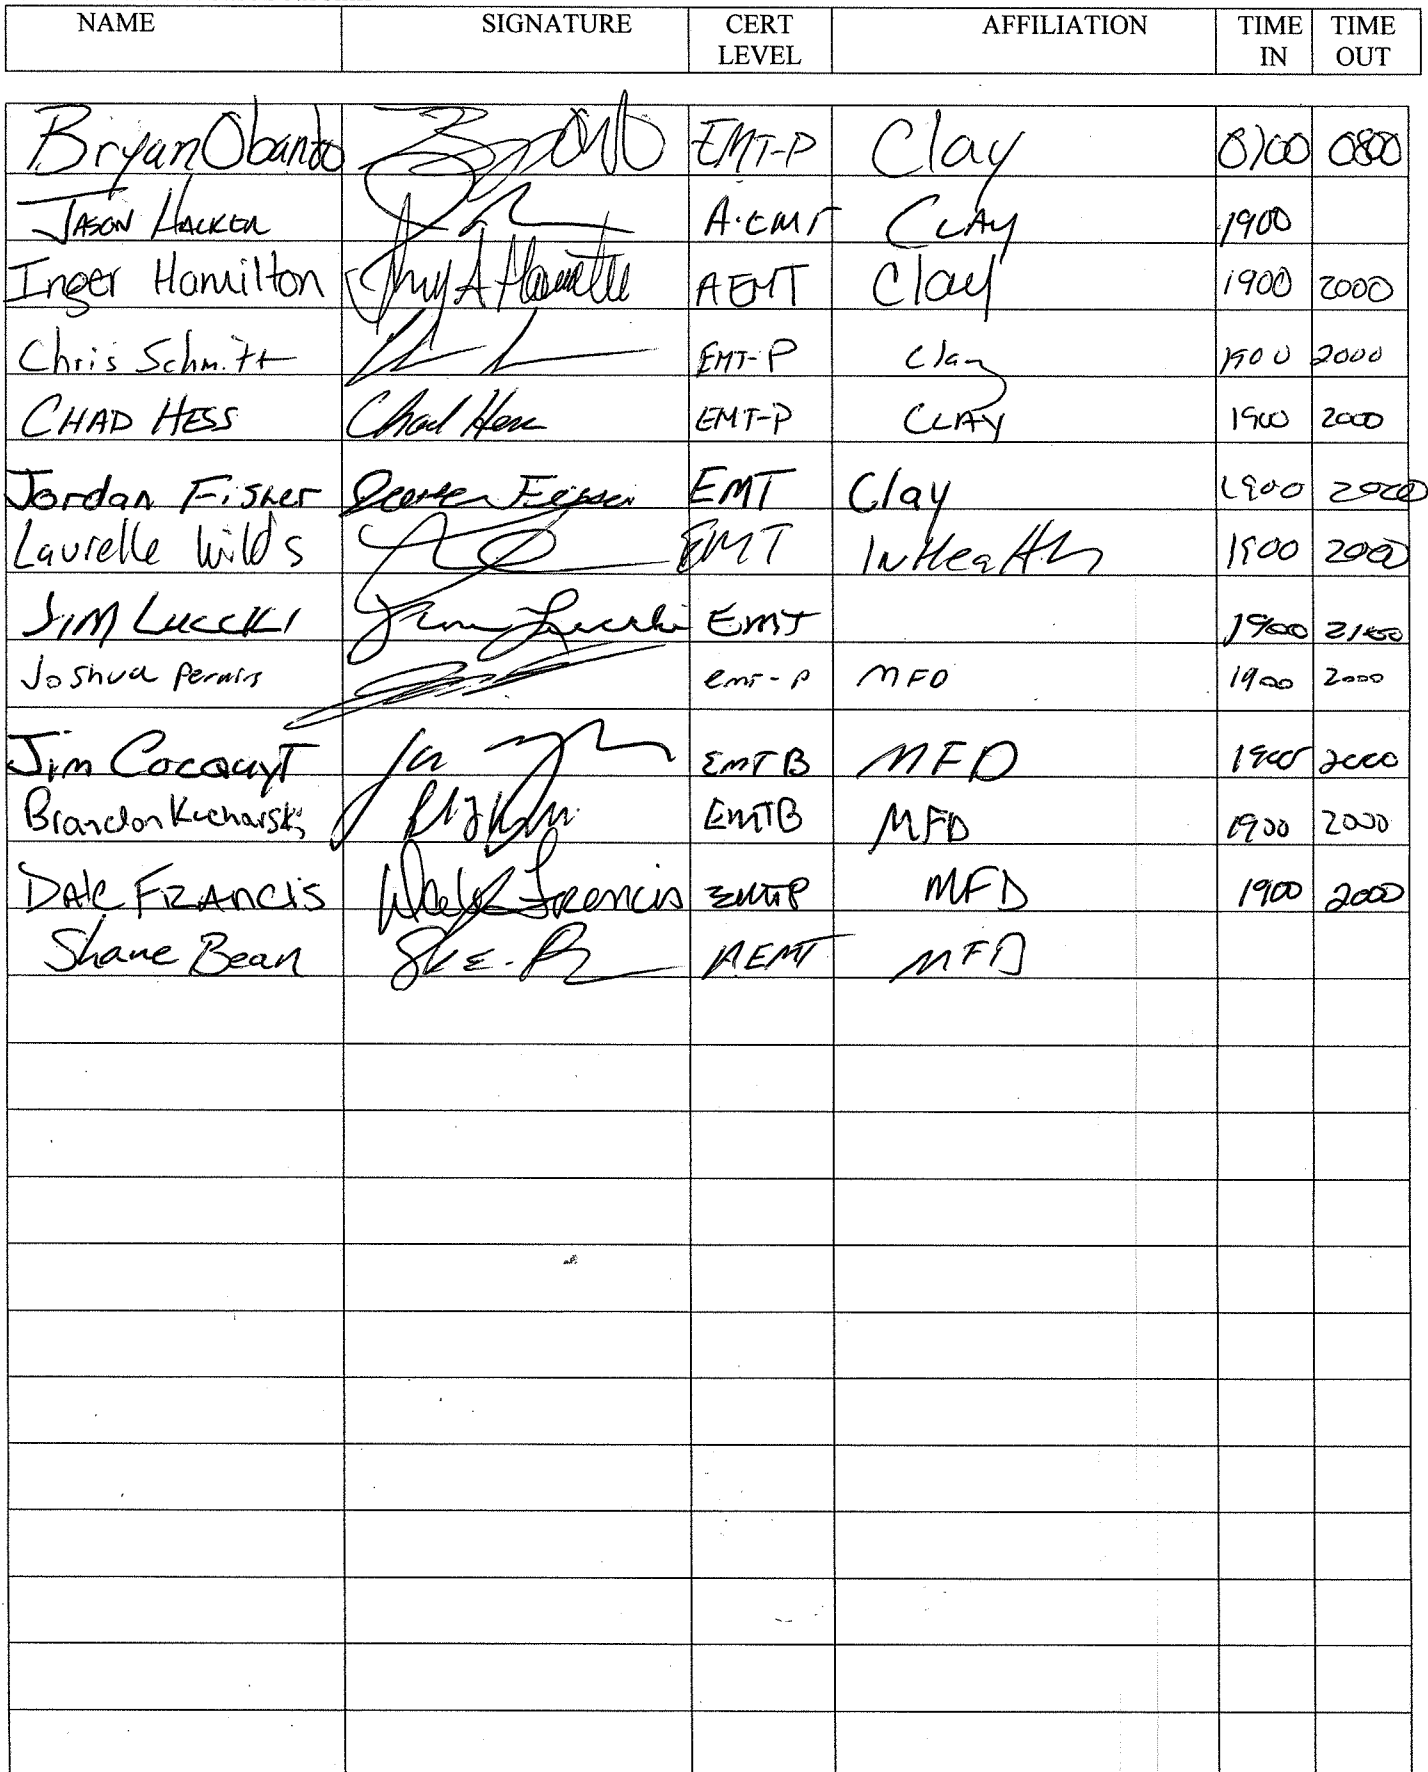 NAME SIGNATURE CERT LEVEL AFFILIATION TIME IN TIME OUT
Bryan Obando EMT-P Clay 0700 0800
JASON HACKER A-EMT CLAY 1900
Inger Hamilton AEMT Clay 1900 2000
Chris Schmitt EMT-P Clay 1900 2000
CHAD HESS Chad Hess EMT-P CLAY 1900 2000
Jordan Fisher EMT Clay 1900 2000
Laurelle Wilds EMT InHealth 1900 2000
JIM LUCCKI EMT 1900 2100
Joshua emt-p MFD 1900 2000
Jim Cocquyt EMTB MFD 1900 2000
Brandon Kucharski EMTB MFD 1900 2000
DALE FRANCIS Francis EMTP MFD 1900 2000
Shane Bean AEMT MFD